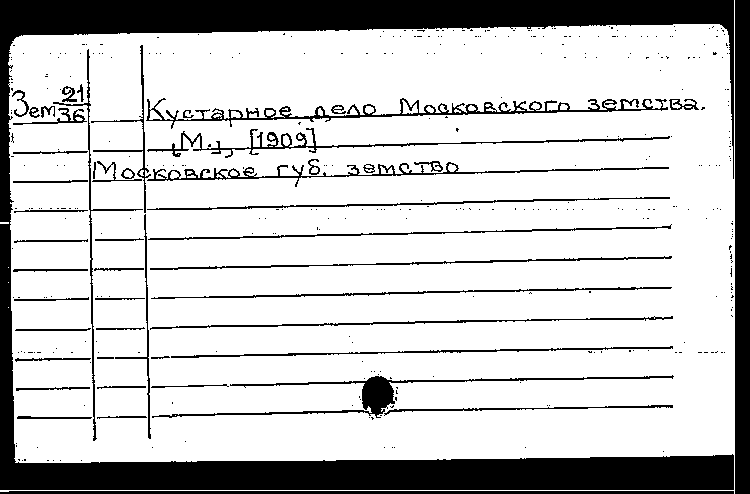 Зем 21/36
Кустарное дело Московского земства.
[М.], [1909]
Московское губ. земство